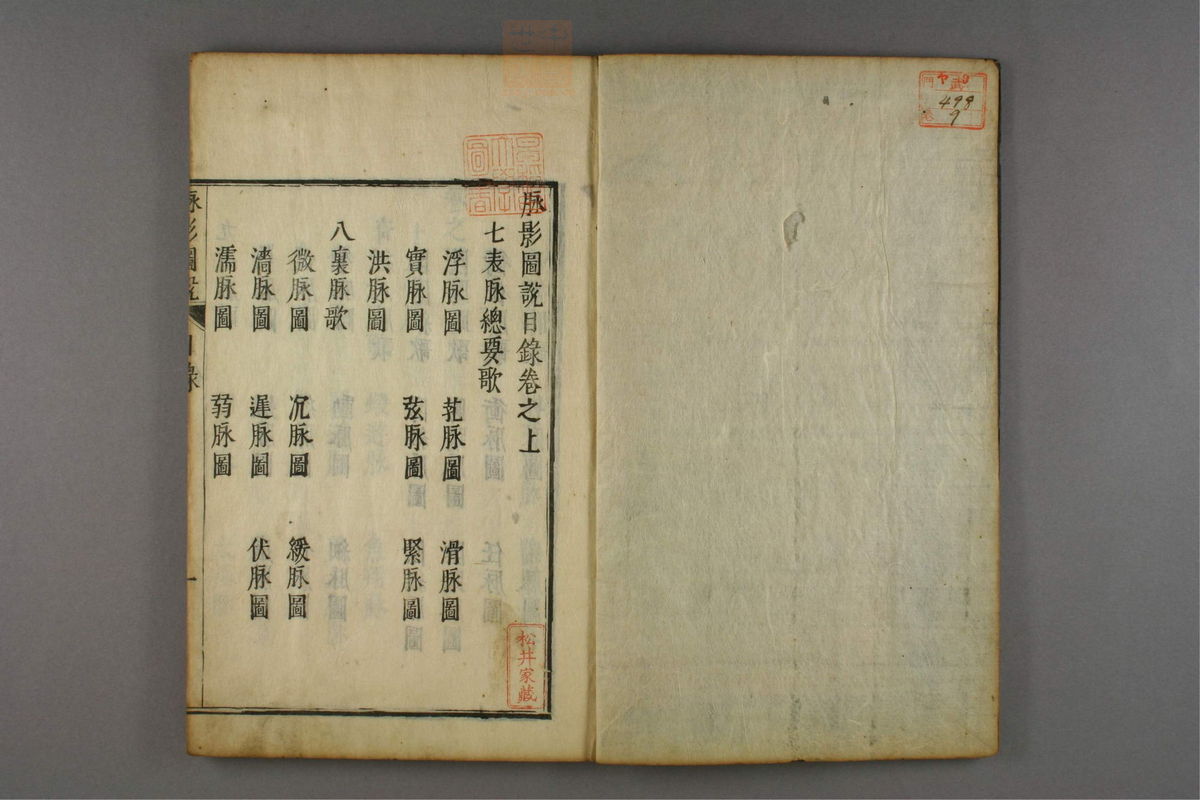 脉影圖說目錄卷之上
七表脉總要歌
浮脉圖 芤脉圖 滑脉圖
實脉圖 弦脉圖 緊脉圖
洪脉圖
八裏脉歌
微脉圖 沉脉圖 緩脉圖
濇脉圖 遲脉圖 伏脉圖
濡脉圖 弱脉圖
脉影圖說 目錄 一
松井家藏
498
9